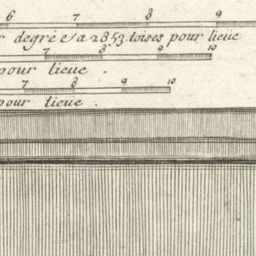 6 7 8 9
r degré et a 2853 toises pour lieue
7 8 9 10
pour lieue .
7 8 9 10
pour lieue .